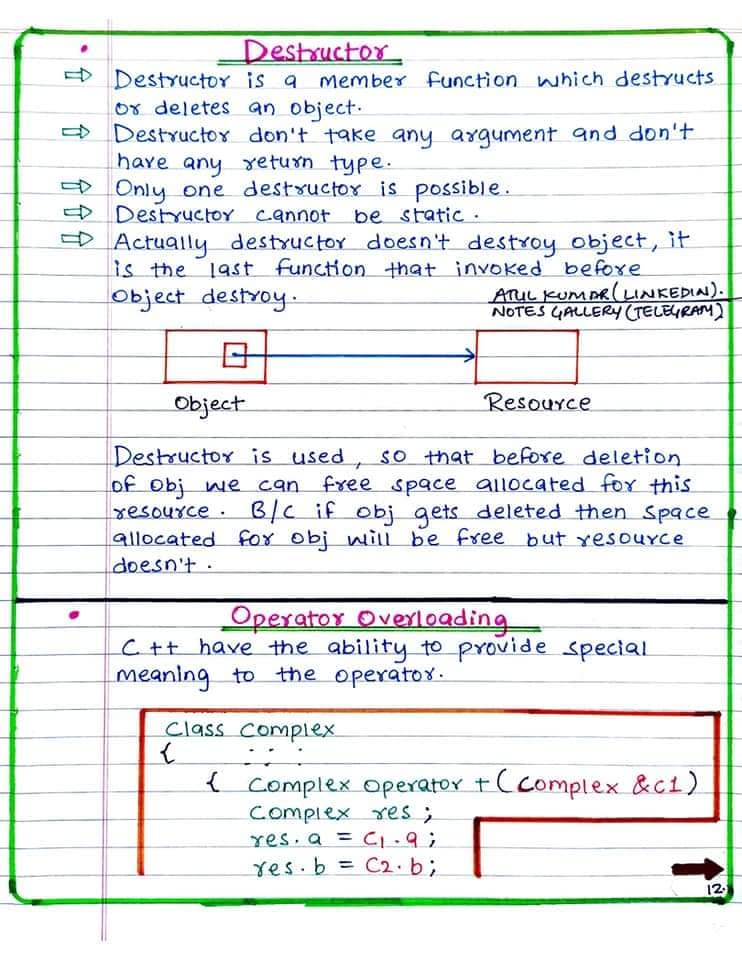 Destructor
⇒ Destructor is a member function which destructs
or deletes an object.
⇒ Destructor don't take any argument and don't
have any return type.
⇒ Only one destructor is possible.
⇒ Destructor cannot be static.
⇒ Actually destructor doesn't destroy object, it
is the last function that invoked before
object destroy.
ATUL KUMAR (LINKEDIN).
NOTES GALLERY (TELEGRAM)
Object
Resource
Destructor is used, so that before deletion
of obj we can free space allocated for this
resource. B/C if obj gets deleted then space
allocated for obj will be free but resource
doesn't.
Operator Overloading
C++ have the ability to provide special
meaning to the operator.
Class Complex
{ . . .
{ Complex operator + (Complex &c1)
Complex res;
res.a = C1.a;
res.b = C2.b;
12.